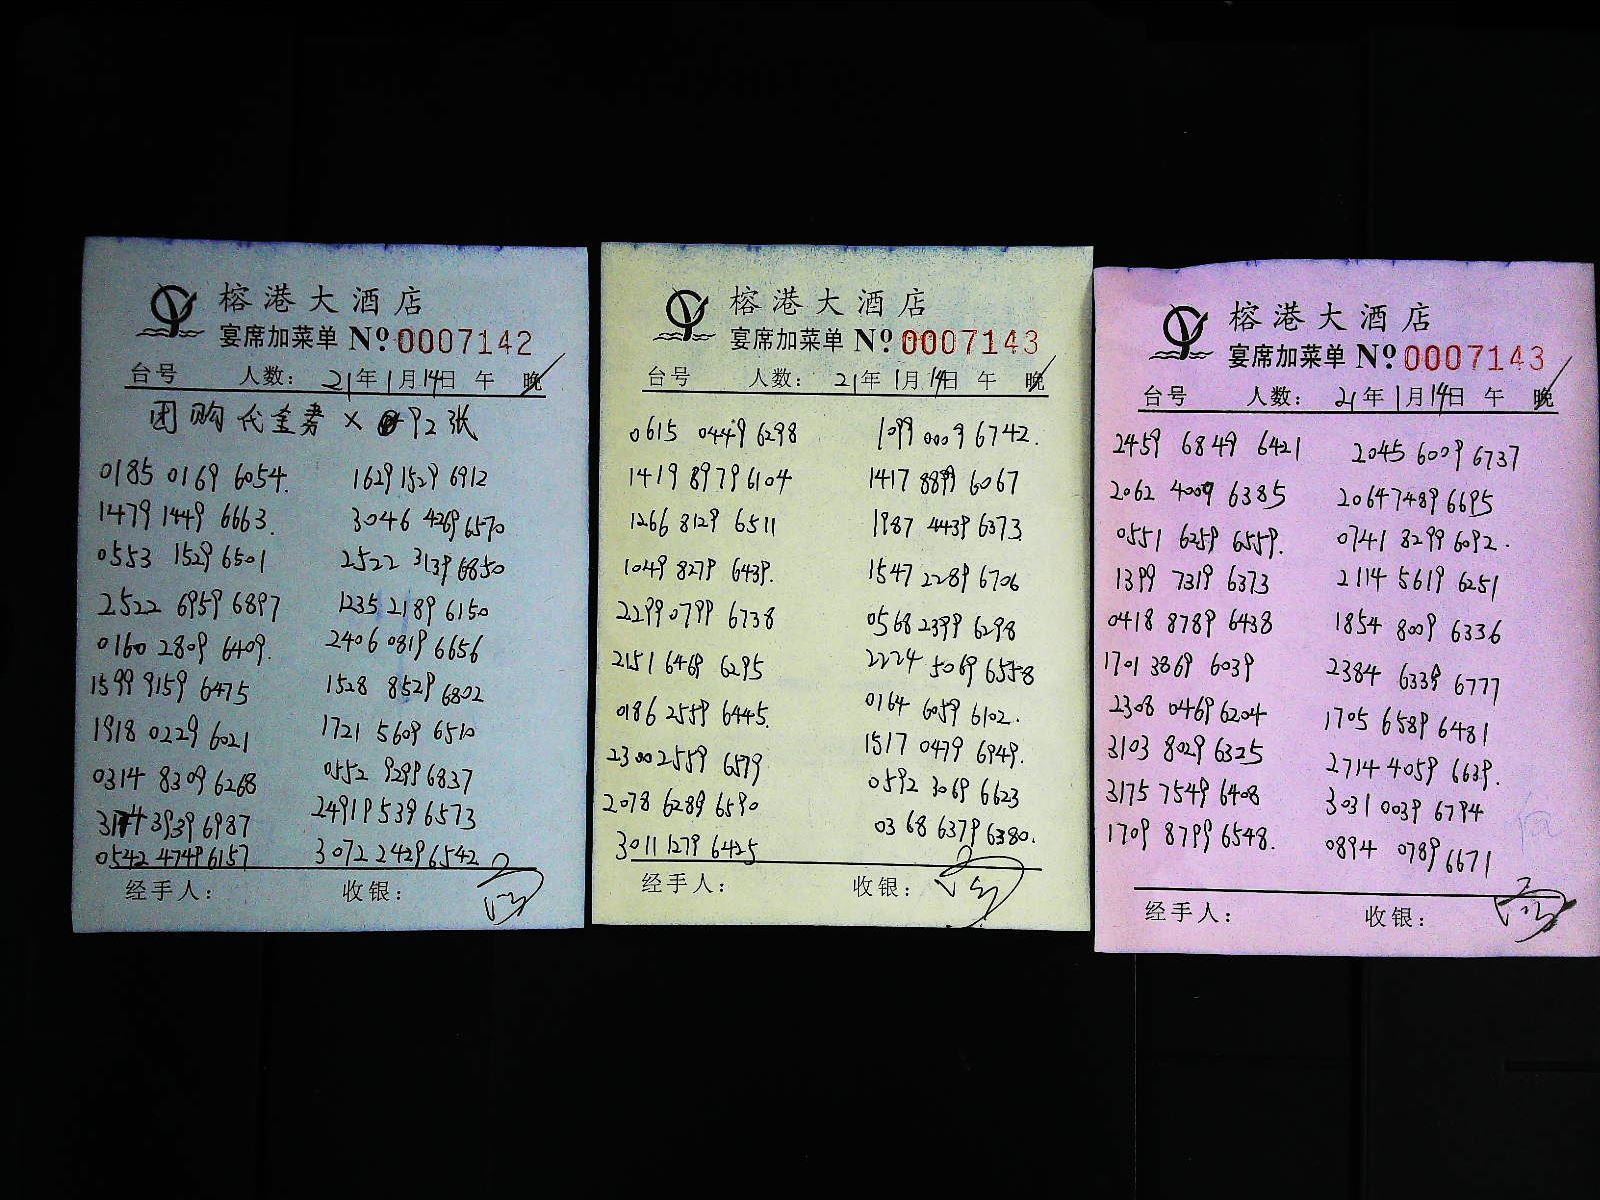 榕港大酒店
宴席加菜单 Nº 0007142
台号 人数： 21年1月14日 午 晚
团购代金券 × 92张
0185 0169 6054. 1629 1529 6912
1479 1449 6663. 3046 4269 6570
0553 1529 6501 2522 3139 6850
2522 6959 6897 1235 2189 6150
0160 2809 6409. 2406 0819 6656
1599 9159 6475 1528 8529 6802
1918 0229 6021 1721 5609 6510
0314 8309 6268 0552 9299 6837
3174 3939 6987 2491 9539 6573
0542 4749 6157 3072 2429 6542
经手人： 收银：
榕港大酒店
宴席加菜单 Nº 0007143
台号 人数： 21年1月14日 午 晚
0615 0449 6298 1099 0009 6742.
1419 8979 6104 1417 8899 6067
1266 8129 6511 1987 4439 6373
1049 8279 6439. 1547 2289 6706
2299 0799 6738 0568 2399 6298
2151 6469 6295 2224 5069 6558
0186 2559 6445. 0164 6059 6102.
2300 2559 6579 1517 0479 6949.
2078 6289 6590 0592 3069 6623
3011 1279 6425 0368 6379 6380.
经手人： 收银：
榕港大酒店
宴席加菜单 Nº 0007143
台号 人数： 21年1月14日 午 晚
2459 6849 6421 2045 6009 6737
2062 4009 6385 2064 7489 6695
0551 6259 6559. 0741 8299 6092.
1399 7319 6373 2114 5619 6251
0418 8789 6438 1854 8009 6336
1701 3869 6039 2384 6339 6777
2308 0469 6204 1705 6589 6481
3103 8029 6325 2714 4059 6639.
3175 7549 6408 3031 0039 6794
1709 8799 6548. 0894 0789 6671
经手人： 收银：